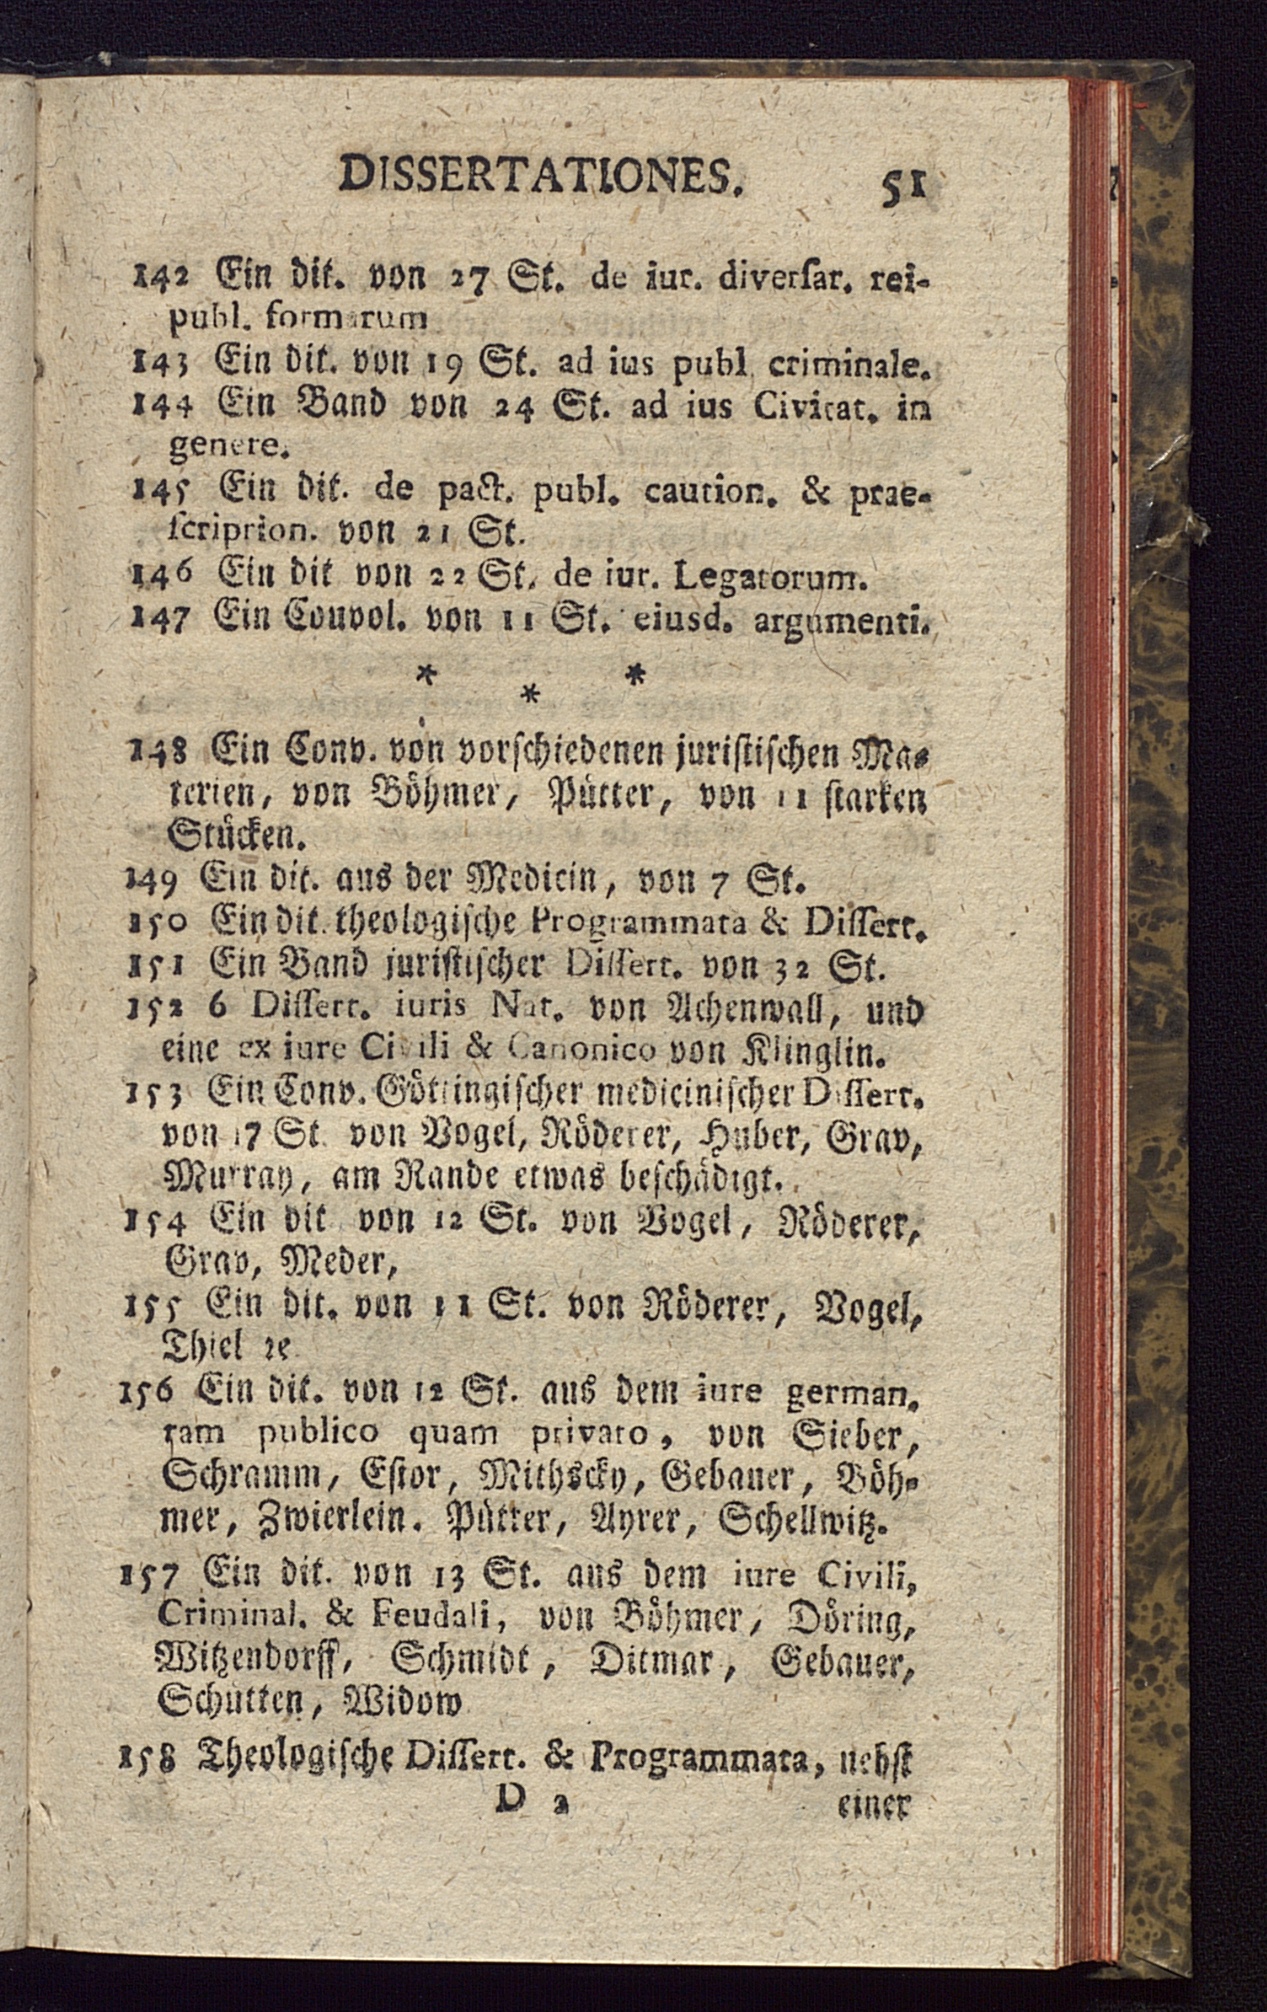 DISSERTATIONES. 51
142 Ein dit. von 27 St. de iur. diversar. rei-
publ. formarum
143 Ein dit. von 19 St. ad ius publ. criminale.
144 Ein Band von 24 St. ad ius Civitat. in
genere.
145 Ein dit. de pact. publ. caution. & prae-
scription. von 21 St.
146 Ein dit von 22 St. de iur. Legatorum.
147 Ein Couvol. von 11 St. eiusd. argumenti.
* * *
148 Ein Conv. von vorschiedenen juristischen Ma-
terien, von Böhmer, Pütter, von 11 starken
Stücken.
149 Ein dit. aus der Medicin, von 7 St.
150 Ein dit. theologische Programmata & Dissert.
151 Ein Band juristischer Dissert. von 32 St.
152 6 Dissert. iuris Nat. von Achenwall, und
eine ex iure Civili & Canonico von Klinglin.
153 Ein Conv. Göttingischer medicinischer Dissert.
von 17 St. von Vogel, Röderer, Huber, Grav,
Murray, am Rande etwas beschädigt.
154 Ein dit von 12 St. von Vogel, Röderer,
Grav, Meder,
155 Ein dit. von 11 St. von Röderer, Vogel,
Thiel ꝛc
156 Ein dit. von 12 St. aus dem iure german.
tam publico quam privato, von Sieber,
Schramm, Estor, Mithscky, Gebauer, Böh-
mer, Zwierlein. Pütter, Ayrer, Schellwitz.
157 Ein dit. von 13 St. aus dem iure Civili,
Criminal. & Feudali, von Böhmer, Döring,
Witzendorff, Schmidt, Ditmar, Gebauer,
Schütten, Widow
158 Theologische Dissert. & Programmata, nebst
D 2 einer